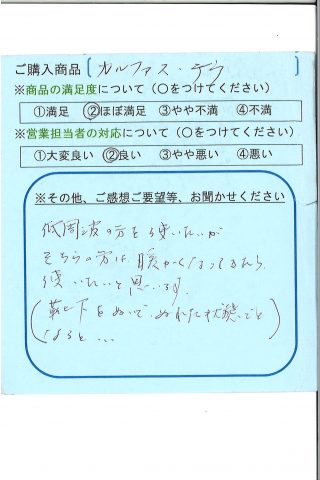 ご購入商品〔カルファス・デラ
※商品の満足度について（○をつけてください）
①満足 ②ほぼ満足 ③やや不満 ④不満
※営業担当者の対応について（○をつけてください）
①大変良い ②良い ③やや悪い ④悪い
※その他、ご感想ご要望等、お聞かせください
低周波の方を使いたいが
そちらの方は、暖かくなってきたら
使いたいと思います。
(靴下をぬいで、ぬれた状態でと
なると...)